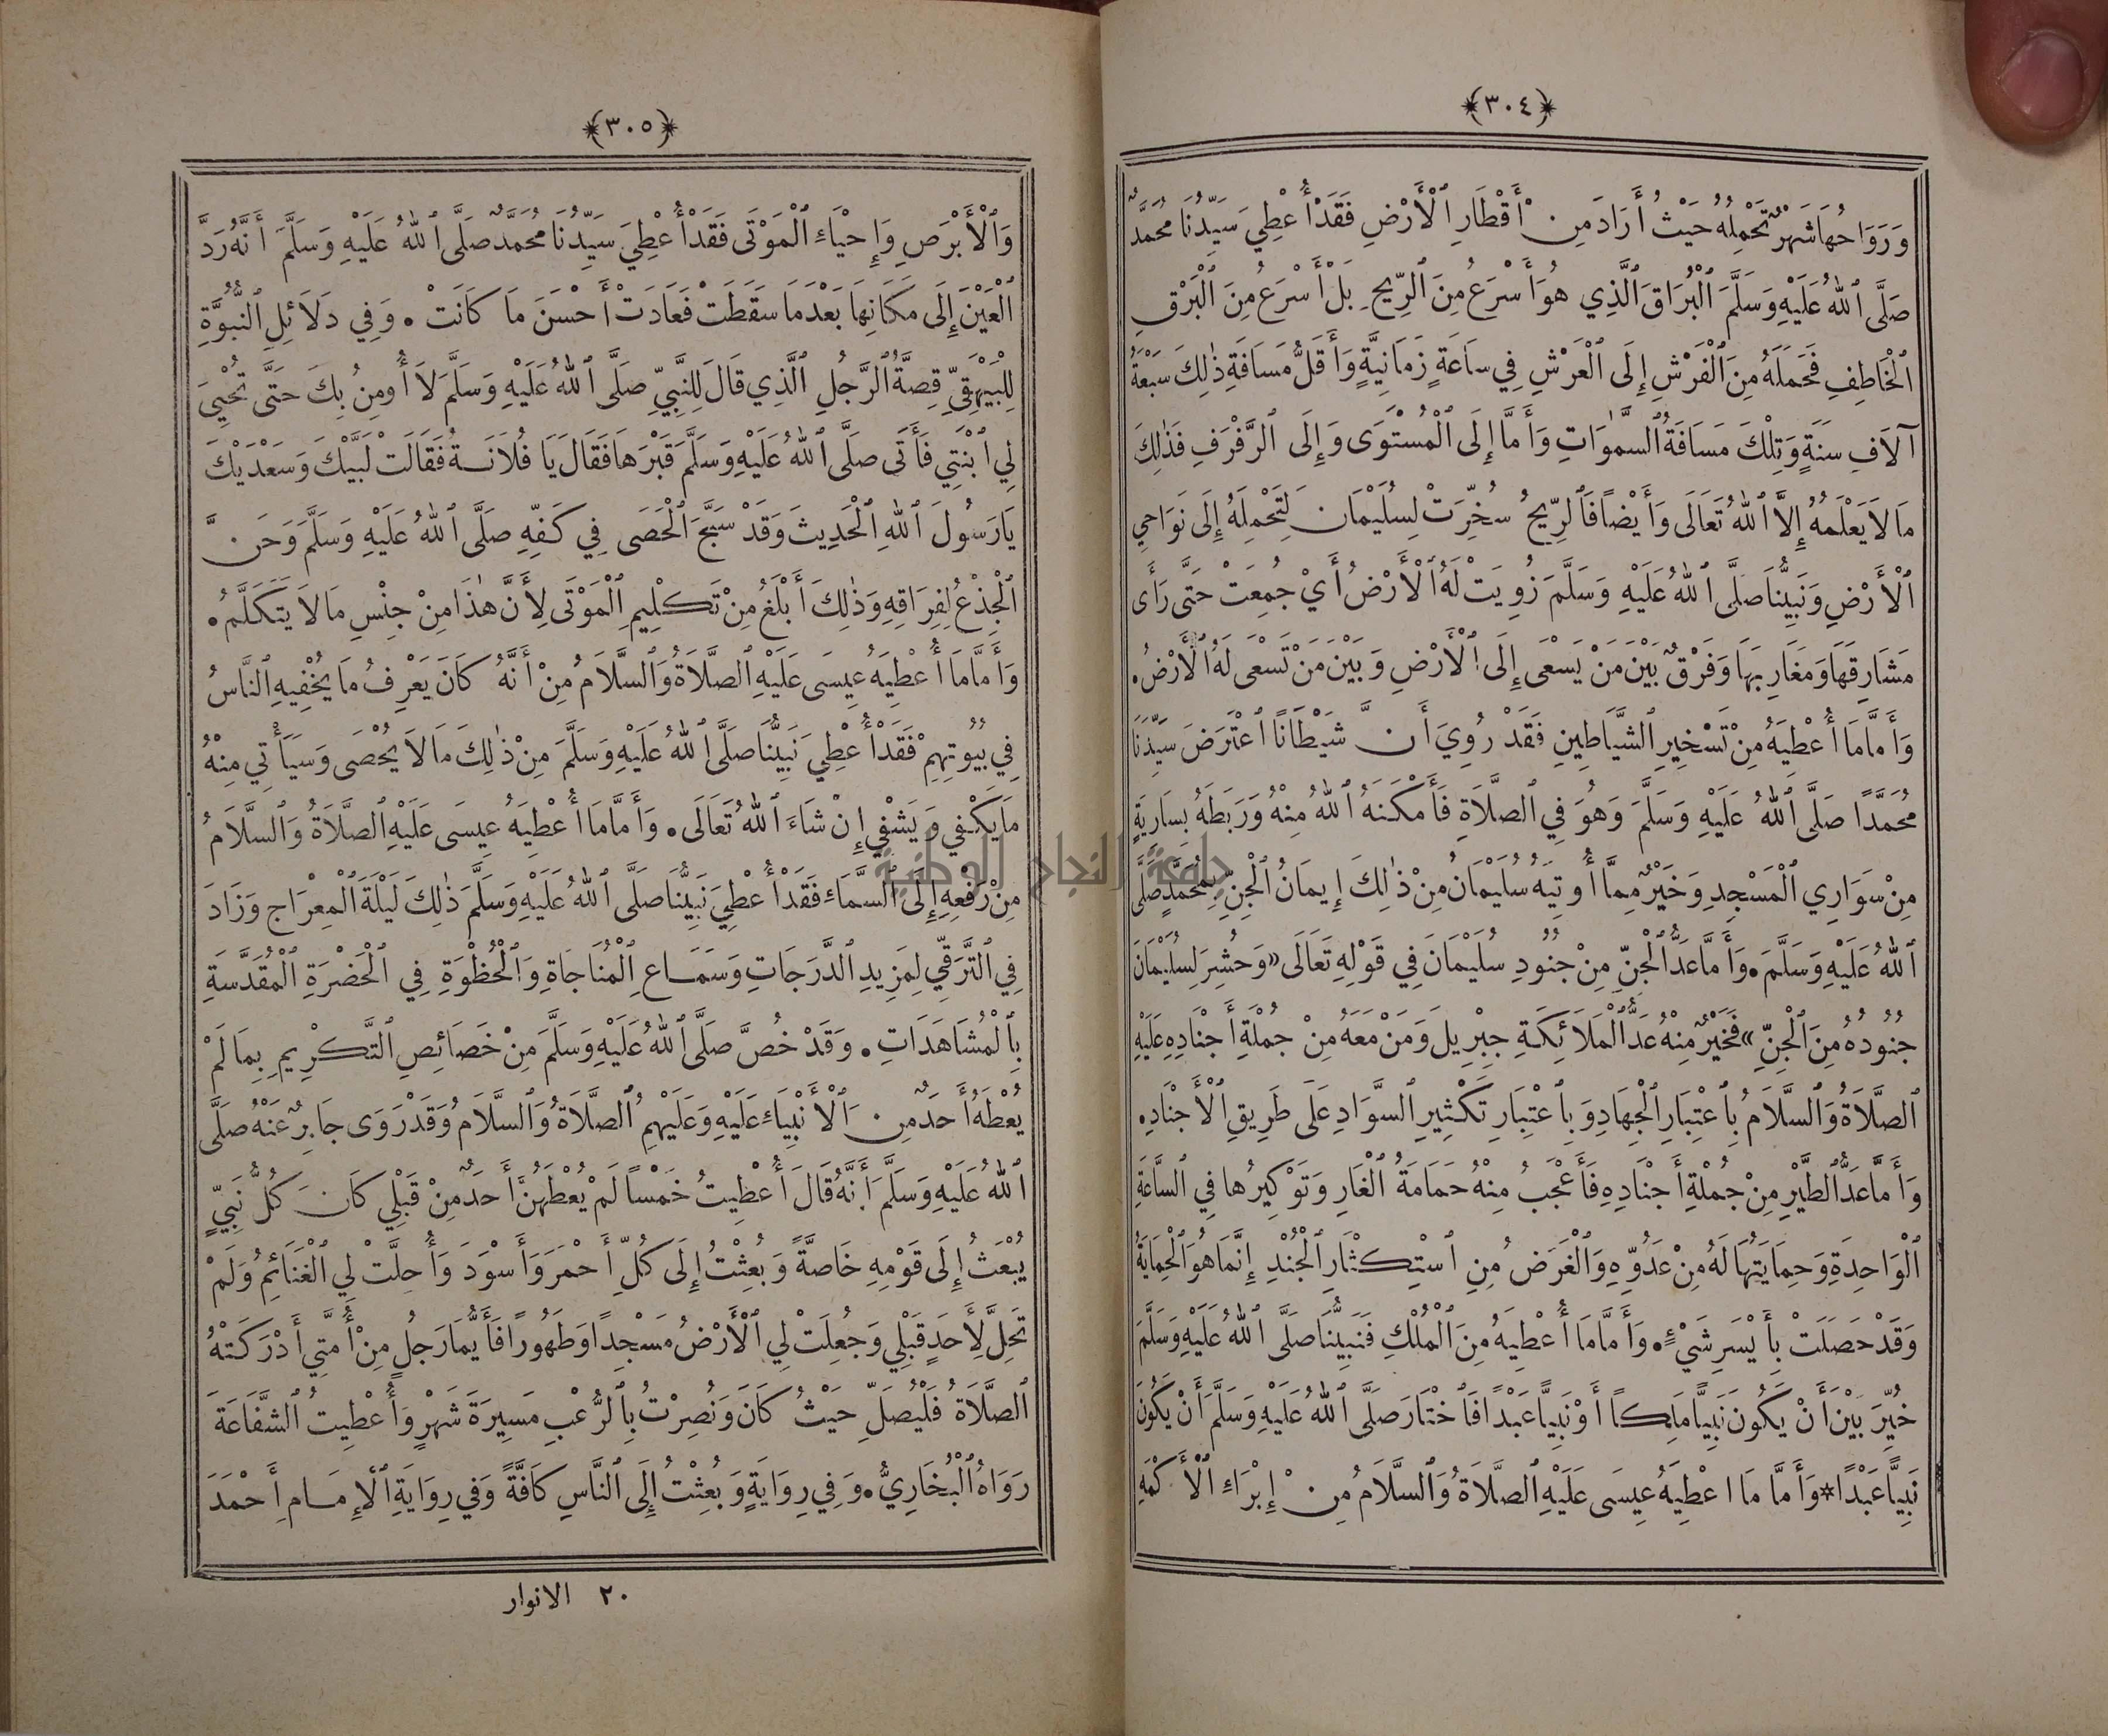 ﴿٣٠٤﴾
وَرَوَاحُهَا شَهْرٌ تَحْمِلُهُ حَيْثُ أَرَادَ مِنْ أَقْطَارِ ٱلْأَرْضِ فَقَدْ أُعْطِيَ سَيِّدُنَا مُحَمَّدٌ
صَلَّى ٱللهُ عَلَيْهِ وَسَلَّمَ ٱلْبُرَاقَ ٱلَّذِي هُوَ أَسْرَعُ مِنَ ٱلرِّيحِ بَلْ أَسْرَعُ مِنَ ٱلْبَرْقِ
ٱلْخَاطِفِ فَحَمَلَهُ مِنَ ٱلْفَرْشِ إِلَى ٱلْعَرْشِ فِي سَاعَةٍ زَمَانِيَّةٍ وَأَقَلُّ مَسَافَةِ ذٰلِكَ سَبْعَةُ
آلَافِ سَنَةٍ وَتِلْكَ مَسَافَةُ ٱلسَّمٰوَاتِ وَأَمَّا إِلَى ٱلْمُسْتَوَى وَإِلَى ٱلرَّفْرَفِ فَذٰلِكَ
مَا لَا يَعْلَمُهُ إِلَّا ٱللهُ تَعَالَى وَأَيْضًا فَٱلرِّيحُ سُخِّرَتْ لِسُلَيْمَانَ لِتَحْمِلَهُ إِلَى نَوَاحِي
ٱلْأَرْضِ وَنَبِيُّنَا صَلَّى ٱللهُ عَلَيْهِ وَسَلَّمَ زُوِيَتْ لَهُ ٱلْأَرْضُ أَيْ جُمِعَتْ حَتَّى رَأَى
مَشَارِقَهَا وَمَغَارِبَهَا وَفَرْقٌ بَيْنَ مَنْ يَسْعَى إِلَى ٱلْأَرْضِ وَبَيْنَ مَنْ تَسْعَى لَهُ ٱلْأَرْضُ.
وَأَمَّا مَا أُعْطِيَهُ مِنْ تَسْخِيرِ ٱلشَّيَاطِينِ فَقَدْ رُوِيَ أَنَّ شَيْطَانًا ٱعْتَرَضَ سَيِّدَنَا
مُحَمَّدًا صَلَّى ٱللهُ عَلَيْهِ وَسَلَّمَ وَهُوَ فِي ٱلصَّلَاةِ فَأَمْكَنَهُ ٱللهُ مِنْهُ وَرَبَطَهُ بِسَارِيَةٍ
مِنْ سَوَارِي ٱلْمَسْجِدِ وَخَيْرٌ مِمَّا أُوتِيَهُ سُلَيْمَانُ مِنْ ذٰلِكَ إِيمَانُ ٱلْجِنِّ بِمُحَمَّدٍ صَلَّى
ٱللهُ عَلَيْهِ وَسَلَّمَ. وَأَمَّا عَدُّ ٱلْجِنِّ مِنْ جُنُودِ سُلَيْمَانَ فِي قَوْلِهِ تَعَالَى «وَحُشِرَ لِسُلَيْمَانَ
جُنُودُهُ مِنَ ٱلْجِنِّ» فَخَيْرٌ مِنْهُ عَدُّ ٱلْمَلَائِكَةِ جِبْرِيلَ وَمَنْ مَعَهُ مِنْ جُمْلَةِ أَجْنَادِهِ عَلَيْهِ
ٱلصَّلَاةُ وَٱلسَّلَامُ بِٱعْتِبَارِ ٱلْجِهَادِ وَبِٱعْتِبَارِ تَكْثِيرِ ٱلسَّوَادِ عَلَى طَرِيقِ ٱلْأَجْنَادِ.
وَأَمَّا عَدُّ ٱلطَّيْرِ مِنْ جُمْلَةِ أَجْنَادِهِ فَأَعْجَبُ مِنْهُ حَمَامَةُ ٱلْغَارِ وَتَوْكِيرُهَا فِي ٱلسَّاعَةِ
ٱلْوَاحِدَةِ وَحِمَايَتُهَا لَهُ مِنْ عَدُوِّهِ وَٱلْغَرَضُ مِنِ ٱسْتِكْثَارِ ٱلْجُنْدِ إِنَّمَا هُوَ ٱلْحِمَايَةُ
وَقَدْ حَصَلَتْ بِأَيْسَرِ شَيْءٍ. وَأَمَّا مَا أُعْطِيَهُ مِنَ ٱلْمُلْكِ فَنَبِيُّنَا صَلَّى ٱللهُ عَلَيْهِ وَسَلَّمَ
خُيِّرَ بَيْنَ أَنْ يَكُونَ نَبِيًّا مَلِكاً أَوْ نَبِيًّا عَبْدًا فَٱخْتَارَ صَلَّى ٱللهُ عَلَيْهِ وَسَلَّمَ أَنْ يَكُونَ
نَبِيًّا عَبْدًا * وَأَمَّا مَا اعْطِيَهُ عِيسَى عَلَيْهِ ٱلصَّلَاةُ وَٱلسَّلَامُ مِنْ إِبْرَاءِ ٱلْأَكْمَهِ
﴿٣٠٥﴾
وَٱلْأَبْرَصِ وَإِحْيَاءِ ٱلْمَوْتَى فَقَدْ أُعْطِيَ سَيِّدُنَا مُحَمَّدٌ صَلَّى ٱللهُ عَلَيْهِ وَسَلَّمَ أَنَّهُ رَدَّ
ٱلْعَيْنَ إِلَى مَكَانِهَا بَعْدَمَا سَقَطَتْ فَعَادَتْ أَحْسَنَ مَا كَانَتْ. وَفِي دَلَائِلِ ٱلنُّبُوَّةِ
لِلْبَيْهَقِيِّ قِصَّةُ ٱلرَّجُلِ ٱلَّذِي قَالَ لِلنَّبِيِّ صَلَّى ٱللهُ عَلَيْهِ وَسَلَّمَ لَا أُومِنُ بِكَ حَتَّى تُحْيِيَ
لِي ٱبْنَتِي فَأَتَى صَلَّى ٱللهُ عَلَيْهِ وَسَلَّمَ قَبْرَهَا فَقَالَ يَا فُلَانَةُ فَقَالَتْ لَبَّيْكَ وَسَعْدَيْكَ
يَا رَسُولَ ٱللهِ ٱلْحَدِيثَ وَقَدْ سَبَّحَ ٱلْحَصَى فِي كَفِّهِ صَلَّى ٱللهُ عَلَيْهِ وَسَلَّمَ وَحَنَّ
ٱلْجِذْعُ لِفِرَاقِهِ وَذٰلِكَ أَبْلَغُ مِنْ تَكْلِيمِ ٱلْمَوْتَى لِأَنَّ هٰذَا مِنْ جِنْسِ مَا لَا يَتَكَلَّمُ.
وَأَمَّا مَا أُعْطِيَهُ عِيسَى عَلَيْهِ ٱلصَّلَاةُ وَٱلسَّلَامُ مِنْ أَنَّهُ كَانَ يَعْرِفُ مَا يُخْفِيهِ ٱلنَّاسُ
فِي بُيُوتِهِمْ فَقَدْ أُعْطِيَ نَبِيُّنَا صَلَّى ٱللهُ عَلَيْهِ وَسَلَّمَ مِنْ ذٰلِكَ مَا لَا يُحْصَى وَسَيَأْتِي مِنْهُ
مَا يَكْفِي وَيَشْفِي إِنْ شَاءَ ٱللهُ تَعَالَى. وَأَمَّا مَا أُعْطِيَهُ عِيسَى عَلَيْهِ ٱلصَّلَاةُ وَٱلسَّلَامُ
مِنْ رَفْعِهِ إِلَى ٱلسَّمَاءِ فَقَدْ أُعْطِيَ نَبِيُّنَا صَلَّى ٱللهُ عَلَيْهِ وَسَلَّمَ ذٰلِكَ لَيْلَةَ ٱلْمِعْرَاجِ وَزَادَ
فِي ٱلتَّرَقِّي لِمَزِيدِ ٱلدَّرَجَاتِ وَسَمَاعِ ٱلْمُنَاجَاةِ وَٱلْحُظْوَةِ فِي ٱلْحَضْرَةِ ٱلْمُقَدَّسَةِ
بِٱلْمُشَاهَدَاتِ. وَقَدْ خُصَّ صَلَّى ٱللهُ عَلَيْهِ وَسَلَّمَ مِنْ خَصَائِصِ ٱلتَّكْرِيمِ بِمَا لَمْ
يُعْطَهُ أَحَدٌ مِنَ ٱلْأَنْبِيَاءِ عَلَيْهِ وَعَلَيْهِمُ ٱلصَّلَاةُ وَٱلسَّلَامُ وَقَدْ رَوَى جَابِرٌ عَنْهُ صَلَّى
ٱللهُ عَلَيْهِ وَسَلَّمَ أَنَّهُ قَالَ أُعْطِيتُ خَمْسًا لَمْ يُعْطَهُنَّ أَحَدٌ مِنْ قَبْلِي كَانَ كُلُّ نَبِيٍّ
يُبْعَثُ إِلَى قَوْمِهِ خَاصَّةً وَبُعِثْتُ إِلَى كُلِّ أَحْمَرَ وَأَسْوَدَ وَأُحِلَّتْ لِي ٱلْغَنَائِمُ وَلَمْ
تَحِلَّ لِأَحَدٍ قَبْلِي وَجُعِلَتْ لِي ٱلْأَرْضُ مَسْجِدًا وَطَهُورًا فَأَيُّمَا رَجُلٍ مِنْ أُمَّتِي أَدْرَكَتْهُ
ٱلصَّلَاةُ فَلْيُصَلِّ حَيْثُ كَانَ وَنُصِرْتُ بِٱلرُّعْبِ مَسِيرَةَ شَهْرٍ وَأُعْطِيتُ ٱلشَّفَاعَةَ
رَوَاهُ ٱلْبُخَارِيُّ. وَفِي رِوَايَةٍ وَبُعِثْتُ إِلَى ٱلنَّاسِ كَافَّةً وَفِي رِوَايَةِ ٱلْإِمَامِ أَحْمَدَ
٢٠ الانوار
جامعة النجاح الوطنية